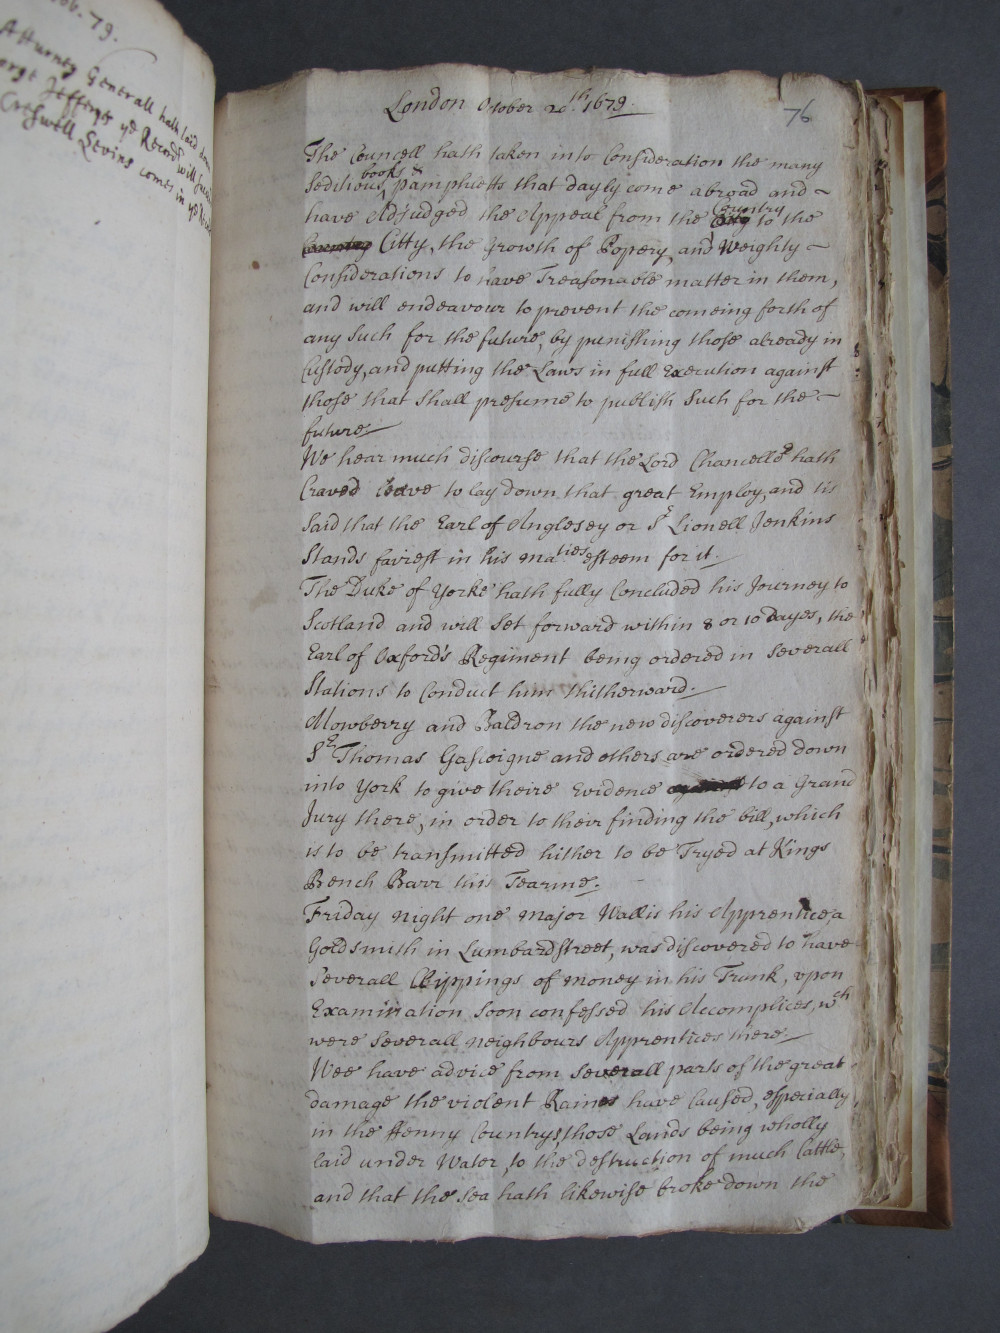 79.
Atturney Generall hath laid down
George Jefferys ye Record.r will
Creswell Levins comes in ye
London October 20.th 1679.
76
The Councell hath taken into Consideration the many
books &
Seditious pamphletts that dayly come abroad and
have Adjudged the Appeal from the City Country to the
Country Citty, the Growth of Popery, and Weighty
Considerations to have Treasonable matter in them,
and will endeavour to prevent the comeing forth of
any Such for the future, by punishing those already in
Custody, and putting the Laws in full Execution against
those that shall presume to publish Such for the
future.
We hear much discourse that the Lord Chancellor hath
Craved leave to lay down that great Employ, and tis
Said that the Earl of Anglesey or Sr Lionell Jenkins
Stands fairest in his maties esteem for it.
The Duke of Yorke hath fully Concluded his Journey to
Scotland and will Set forward within 8 or 10 Dayes, the
Earl of Oxford's Regiment being ordered in Severall
Stations to Conduct him thitherward.
Mowberry and Baldron the new discoverers against
Sr Thomas Gascoigne and others are ordered down
into York to give theire Evidence against to a Grand
Jury there, in order to their finding the bill, which
is to be transmitted hither to be Tryed at Kings
Bench Barr this Tearme.
Friday night one Major Wallis his Apprentice, a
Goldsmith in Lumbardstreet, was discovered to have
Severall Clippings of money in his Trunk, upon
Examination Soon confessed his Accomplices, wch
were Severall neighbours Apprentices there.
Wee have advice from Severall parts of the great
damage the violent Raines have Caused, especially
in the ffenny Countrys, those Lands being wholly
laid under Water, to the destruction of much Cattle,
and that the Sea hath likewise broke down the